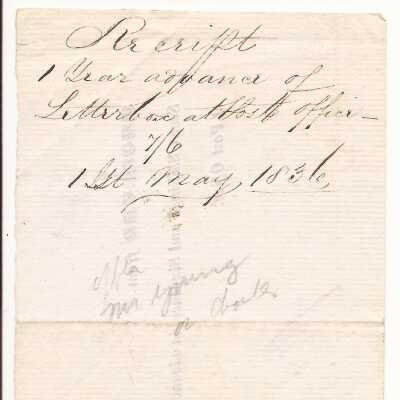 Receipt
1 Year advance of
Letterbox at Post Office
7/6
1st May, 1836,
Mr Young